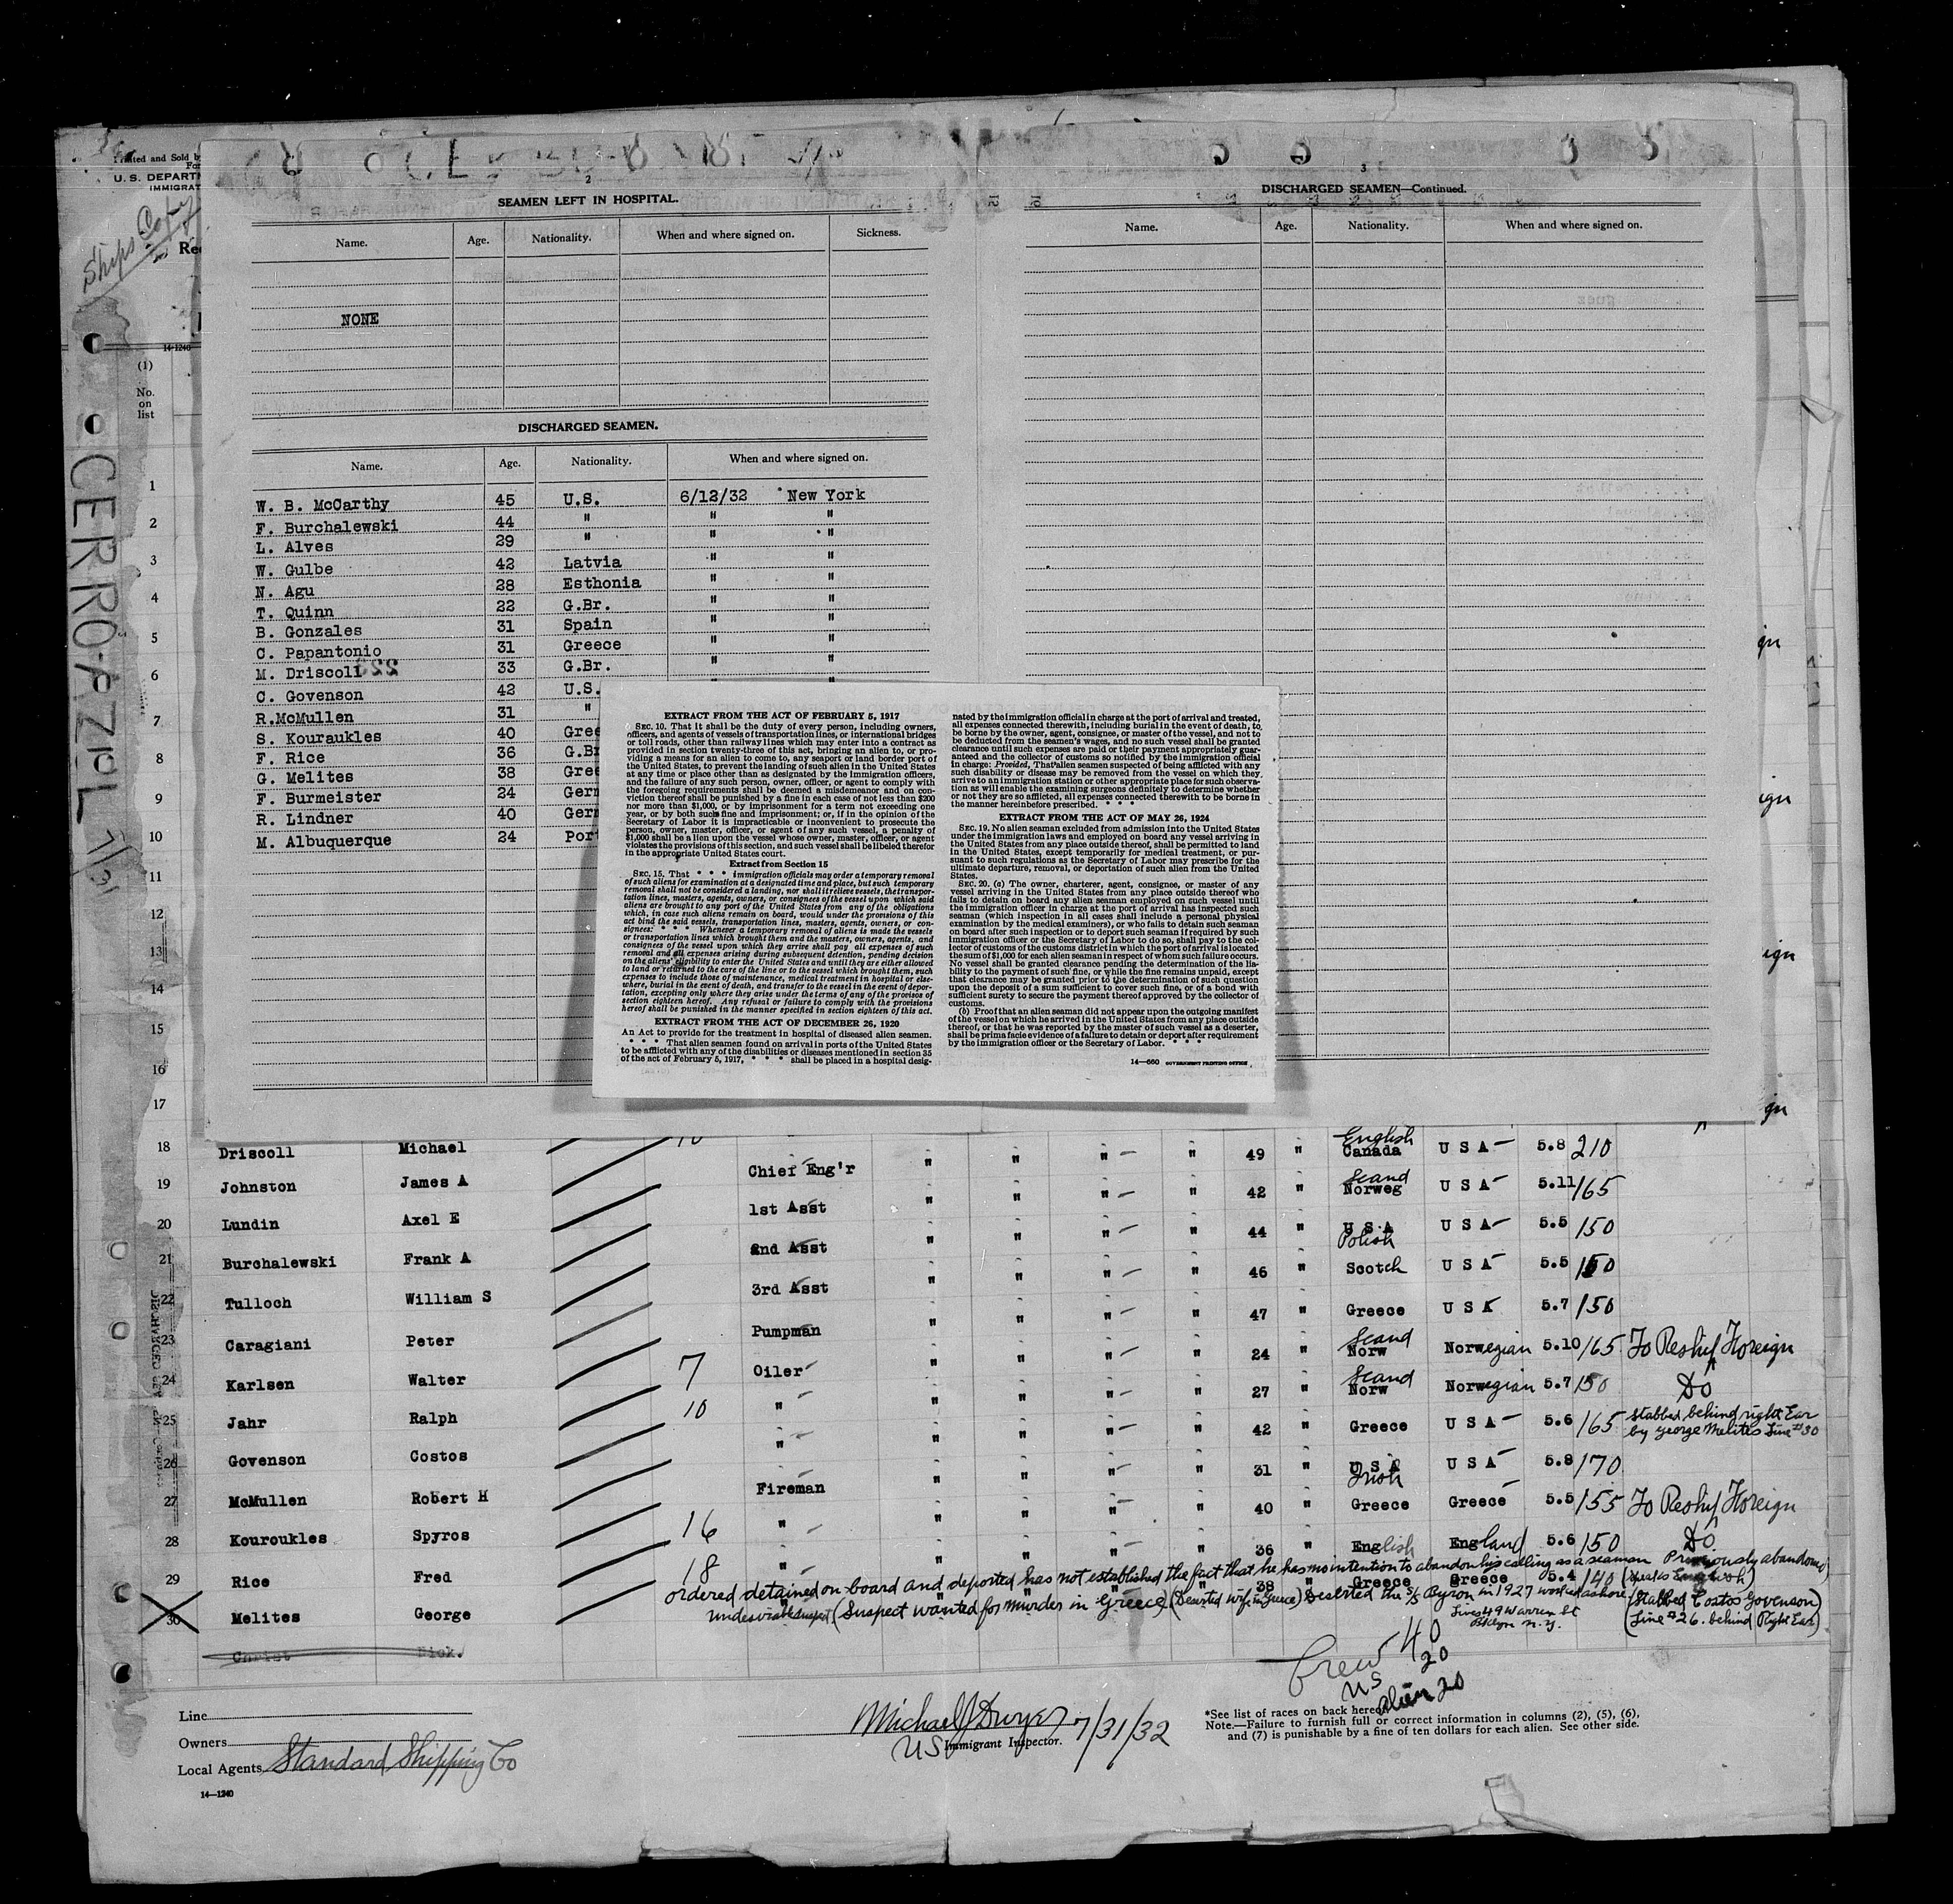 Printed and Sold by
U. S. DEPARTM
IMMIGRAT
Ships Copy
(1)
No.
on
list
CERRO AZUL 7/31
2
SEAMEN LEFT IN HOSPITAL.
Name. Age. Nationality. When and where signed on. Sickness.
NONE
DISCHARGED SEAMEN.
Name. Age. Nationality. When and where signed on.
W. B. McCarthy 45 U.S. 6/12/32 New York
F. Burchalewski 44 " " "
L. Alves 29 " " "
W. Gulbe 42 Latvia " "
N. Agu 28 Esthonia " "
T. Quinn 22 G.Br. " "
B. Gonzales 31 Spain " "
C. Papantonio 31 Greece " "
M. Driscoll 33 G.Br. " "
C. Govenson 42 U.S.
R.McMullen 31 "
S. Kouraukles 40 Gree
F. Rice 36 G.Br
G. Melites 38 Gree
F. Burmeister 24 Germ
R. Lindner 40 Germ
M. Albuquerque 24 Port
3
DISCHARGED SEAMEN—Continued.
Name. Age. Nationality. When and where signed on.
EXTRACT FROM THE ACT OF FEBRUARY 5, 1917
SEC. 10. That it shall be the duty of every person, including owners,
officers, and agents of vessels of transportation lines, or international bridges
or toll roads, other than railway lines which may enter into a contract as
provided in section twenty-three of this act, bringing an alien to, or pro-
viding a means for an alien to come to, any seaport or land border port of
the United States, to prevent the landing of such alien in the United States
at any time or place other than as designated by the immigration officers,
and the failure of any such person, owner, officer, or agent to comply with
the foregoing requirements shall be deemed a misdemeanor and on con-
viction thereof shall be punished by a fine in each case of not less than $200
nor more than $1,000, or by imprisonment for a term not exceeding one
year, or by both such fine and imprisonment; or, if in the opinion of the
Secretary of Labor it is impracticable or inconvenient to prosecute the
person, owner, master, officer, or agent of any such vessel, a penalty of
$1,000 shall be a lien upon the vessel whose owner, master, officer, or agent
violates the provisions of this section, and such vessel shall be libeled therefor
in the appropriate United States court.
Extract from Section 15
SEC. 15. That * * * immigration officials may order a temporary removal
of such aliens for examination at a designated time and place, but such temporary
removal shall not be considered a landing, nor shall it relieve vessels, the transpor-
tation lines, masters, agents, owners, or consignees of the vessel upon which said
aliens are brought to any port of the United States from any of the obligations
which, in case such aliens remain on board, would under the provisions of this
act bind the said vessels, transportation lines, masters, agents, owners, or con-
signees: * * * Whenever a temporary removal of aliens is made the vessels
or transportation lines which brought them and the masters, owners, agents, and
consignees of the vessel upon which they arrive shall pay all expenses of such
removal and all expenses arising during subsequent detention, pending decision
on the aliens' eligibility to enter the United States and until they are either allowed
to land or returned to the care of the line or to the vessel which brought them, such
expenses to include those of maintenance, medical treatment in hospital or else-
where, burial in the event of death, and transfer to the vessel in the event of depor-
tation, excepting only where they arise under the terms of any of the provisos of
section eighteen hereof. Any refusal or failure to comply with the provisions
hereof shall be punished in the manner specified in section eighteen of this act.
EXTRACT FROM THE ACT OF DECEMBER 26, 1920
An Act to provide for the treatment in hospital of diseased alien seamen.
* * * That alien seamen found on arrival in ports of the United States
to be afflicted with any of the disabilities or diseases mentioned in section 35
of the act of February 5, 1917, * * * shall be placed in a hospital desig-
nated by the immigration official in charge at the port of arrival and treated,
all expenses connected therewith, including burial in the event of death, to
be borne by the owner, agent, consignee, or master of the vessel, and not to
be deducted from the seamen's wages, and no such vessel shall be granted
clearance until such expenses are paid or their payment appropriately guar-
anteed and the collector of customs so notified by the immigration official
in charge: Provided, That alien seamen suspected of being afflicted with any
such disability or disease may be removed from the vessel on which they
arrive to an immigration station or other appropriate place for such observa-
tion as will enable the examining surgeons definitely to determine whether
or not they are so afflicted, all expenses connected therewith to be borne in
the manner hereinbefore prescribed. * * *
EXTRACT FROM THE ACT OF MAY 26, 1924
SEC. 19. No alien seaman excluded from admission into the United States
under the immigration laws and employed on board any vessel arriving in
the United States from any place outside thereof, shall be permitted to land
in the United States, except temporarily for medical treatment, or pur-
suant to such regulations as the Secretary of Labor may prescribe for the
ultimate departure, removal, or deportation of such alien from the United
States.
SEC. 20. (a) The owner, charterer, agent, consignee, or master of any
vessel arriving in the United States from any place outside thereof who
fails to detain on board any alien seaman employed on such vessel until
the immigration officer in charge at the port of arrival has inspected such
seaman (which inspection in all cases shall include a personal physical
examination by the medical examiners), or who fails to detain such seaman
on board after such inspection or to deport such seaman if required by such
immigration officer or the Secretary of Labor to do so, shall pay to the col-
lector of customs of the customs district in which the port of arrival is located
the sum of $1,000 for each alien seaman in respect of whom such failure occurs.
No vessel shall be granted clearance pending the determination of the lia-
bility to the payment of such fine, or while the fine remains unpaid, except
that clearance may be granted prior to the determination of such question
upon the deposit of a sum sufficient to cover such fine, or of a bond with
sufficient surety to secure the payment thereof approved by the collector of
customs.
(b) Proof that an alien seaman did not appear upon the outgoing manifest
of the vessel on which he arrived in the United States from any place outside
thereof, or that he was reported by the master of such vessel as a deserter,
shall be prima facie evidence of a failure to detain or deport after requirement
by the immigration officer or the Secretary of Labor. * * *
14—660 GOVERNMENT PRINTING OFFICE
1
2
3
4
5
6
7
8
9
10
11
12
13
14
15
16
17
18 Driscoll Michael
19 Johnston James A Chief Eng'r " " " " 49 " English Canada U S A 5.8 210
20 Lundin Axel E 1st Asst " " " " 42 " Scand Norweg U S A 5.11 165
21 Burchalewski Frank A 2nd Asst " " " " 44 " U S A Polish U S A 5.5 150
22 Tulloch William S 3rd Asst " " " " 46 " Scotch U S A 5.5 150
23 Caragiani Peter Pumpman " " " " 47 " Greece U S A 5.7 150
24 Karlsen Walter 7 Oiler " " " " 24 " Scand Norw Norwegian 5.10 165 To Reship Foreign
25 Jahr Ralph 10 " " " " " 27 " Scand Norw Norwegian 5.7 150 Do
26 Govenson Costos " " " " " 42 " Greece U S A 5.6 165 Stabbed behind right Ear by George Melites Line #30
27 McMullen Robert H Fireman " " " " 31 " U S A Irish U S A 5.8 170
28 Kouroukles Spyros 16 " " " " " 40 " Greece Greece 5.5 155 To Reship Foreign
29 Rice Fred 18 " " " " " 36 " English England 5.6 150 Do
30 Melites George " " " " " 38 " Greece Greece 5.4 140 (Speaks English)
ordered detained on board and deported has not established the fact that he has no intention to abandon his calling as a seaman Previously abandoned
undesirable (Suspect wanted for Murder in Greece) (Deserted wife in Greece) Deserted the S/S Byron in 1927 worked ashore
Lives 49 Warren St
Bklyn N.Y.
(Stabbed Costos Govenson)
(Line #26. behind Right Ear)
Christ Nick.
Crew 40
US 20
Alien 20
Line
Owners
Local Agents Standard Shipping Co
14—1240
Michael J Dwyer 7/31/32
US Immigrant Inspector.
*See list of races on back hereof
Note.—Failure to furnish full or correct information in columns (2), (5), (6),
and (7) is punishable by a fine of ten dollars for each alien. See other side.